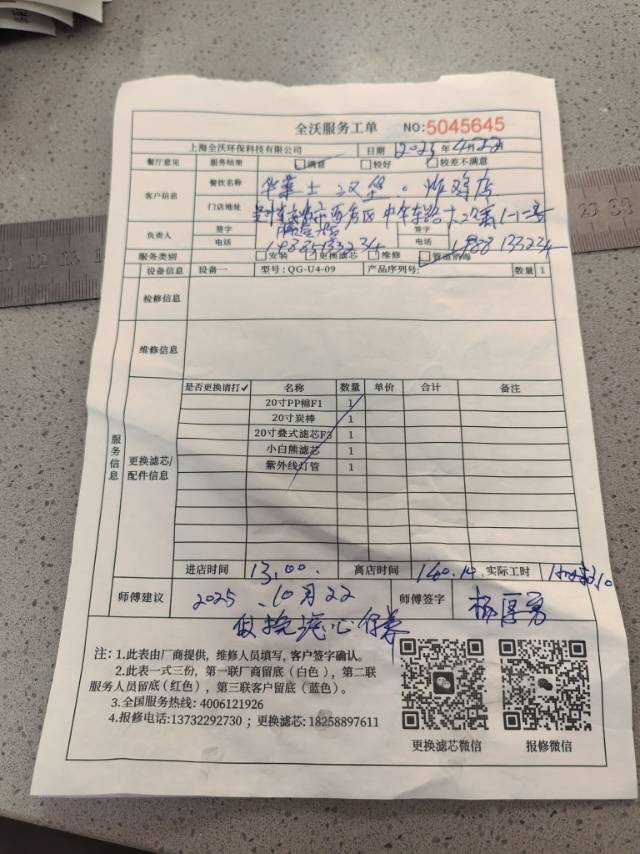 全沃服务工单 NO:5045645
上海全沃环保科技有限公司 日期
餐厅意见 服务结果 满意 较好 较差不满意
客户信息 餐饮名称 华莱士 汉堡。炸鸡店
门店地址
负责人 签字 签字
电话 电话
服务类别 安装 更换滤芯 维修 管道消毒
设备信息 设备一 型号:QG-U4-09 产品序列号: 数量 1
检修信息
维修信息
服务信息
更换滤芯/配件信息
是否更换请打✓ 名称 数量 单价 合计 备注
20寸PP棉F1 1
20寸炭棒 1
20寸叠式滤芯F3 1
小白熊滤芯 1
紫外线灯管 1
进店时间 13.00. 离店时间 实际工时
师傅建议 2025.10月22 师傅签字
注:1.此表由厂商提供,维修人员填写,客户签字确认。
2.此表一式三份,第一联厂商留底(白色),第二联
服务人员留底(红色),第三联客户留底(蓝色)。
3.全国服务热线:4006121926
4.报修电话:13732292730;更换滤芯:18258897611
更换滤芯微信 报修微信